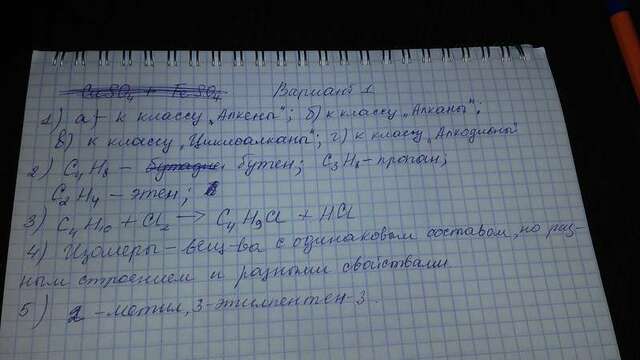 CuSO4 + FeSO4 Вариант 1
1) а) - к классу „Алкены"; б) к классу „Алканы";
в) к классу „Циклоалканы"; г) к классу „Алкодиены"
2) C4H8 - бутадие бутен; C3H8 - пропан;
C2H4 - этен;
3) C4H10 + Cl2 → C4H9Cl + HCl
4) Изомеры - вещ-ва с одинаковым составом, но раз-
ным строением и разными свойствами
5) 2 - метил, 3 - этилпентен - 3.